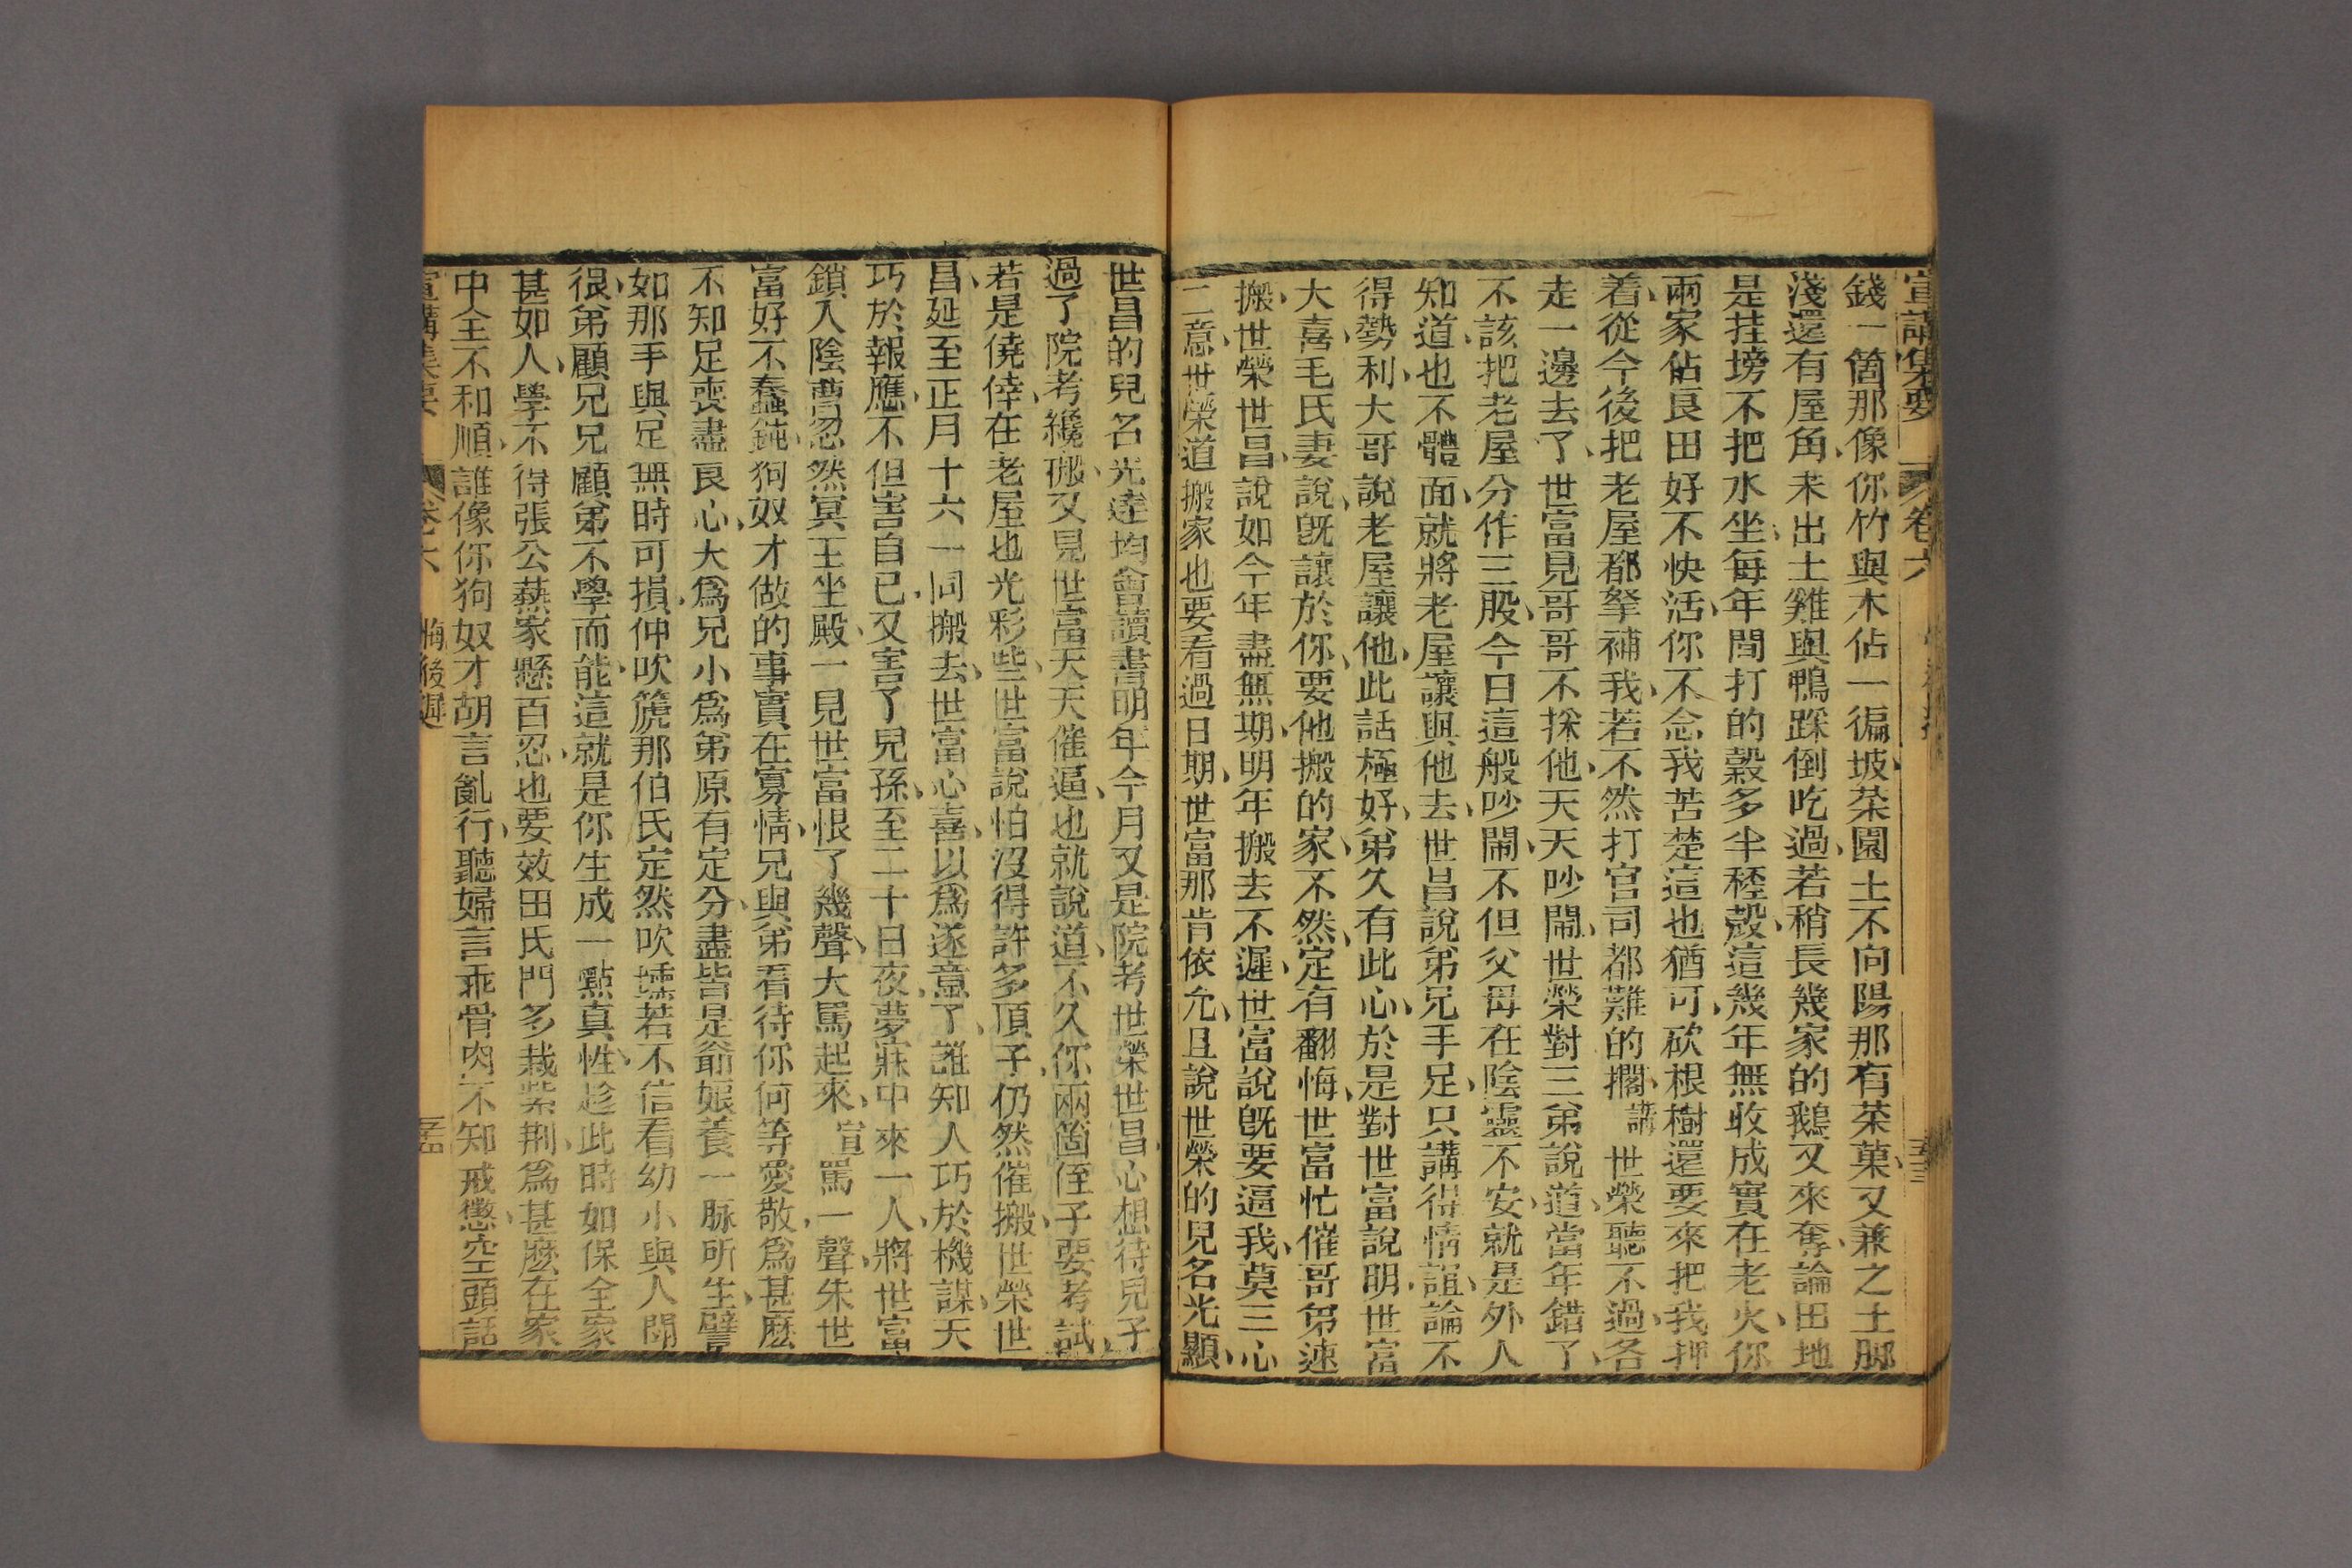 宣講集要 卷六 五三
錢一箇那像你竹與木佔一徧坡茶園土不向陽那有茶菓又兼之土脚
淺還有屋角未出土雞與鴨踩倒吃過若稍長幾家的鵝又來奪論田地
是挂塝不把水坐每年間打的穀多半秷殼這幾年無收成實在老火你
兩家佔良田好不快活你不念我苦楚這也猶可砍根樹還要來把我押
着從今後把老屋都拏補我若不然打官司都難的擱講世榮聽不過各
走一邊去了世富見哥哥不採他天天吵鬧世榮對三弟說道當年錯了
不該把老屋分作三股今日這般吵鬧不但父母在陰靈不安就是外人
知道也不體面就將老屋讓與他去世昌說弟兄手足只講得情誼論不
得勢利大哥說老屋讓他此話極好弟久有此心於是對世富說明世富
大喜毛氏妻說旣讓於你要他搬的家不然定有翻悔世富忙催哥弟速
搬世榮世昌說如今年盡無期明年搬去不遲世富說旣要逼我莫三心
二意世榮道搬家也要看過日期世富那肯依允且說世榮的兒名光顯
世昌的兒名光達均會讀書明年今月又是院考世榮世昌心想待兒子
過了院考纔挪又見世富天天催逼也就說道不久你兩箇侄子要考試
若是僥倖在老屋也光彩些世富說怕沒得許多頂子仍然催搬世榮世
昌延至正月十六一同搬去世富心喜以爲遂意了誰知人巧於機謀天
巧於報應不但害自己又害了兒孫至二十日夜夢莊中來一人將世富
鎖入陰曹忽然冥王坐殿一見世富恨了幾聲大罵起來宣罵一聲朱世
富好不蠢鈍狗奴才做的事實在寡情兄與弟看待你何等愛敬爲甚麽
不知足喪盡良心大爲兄小爲弟原有定分盡皆是爺娘養一脉所生譬
如那手與足無時可損仲吹篪那伯氏定然吹壎若不信看幼小與人鬧
很弟顧兄兄顧弟不學而能這就是你生成一點真性趁此時如保全家
甚如人學不得張公藝家懸百忍也要效田氏門多栽紫荆爲甚麽在家
中全不和順誰像你狗奴才胡言亂行聽婦言乖骨肉不知戒懲空頭話
宣講集要 卷六 悔後遲 五四